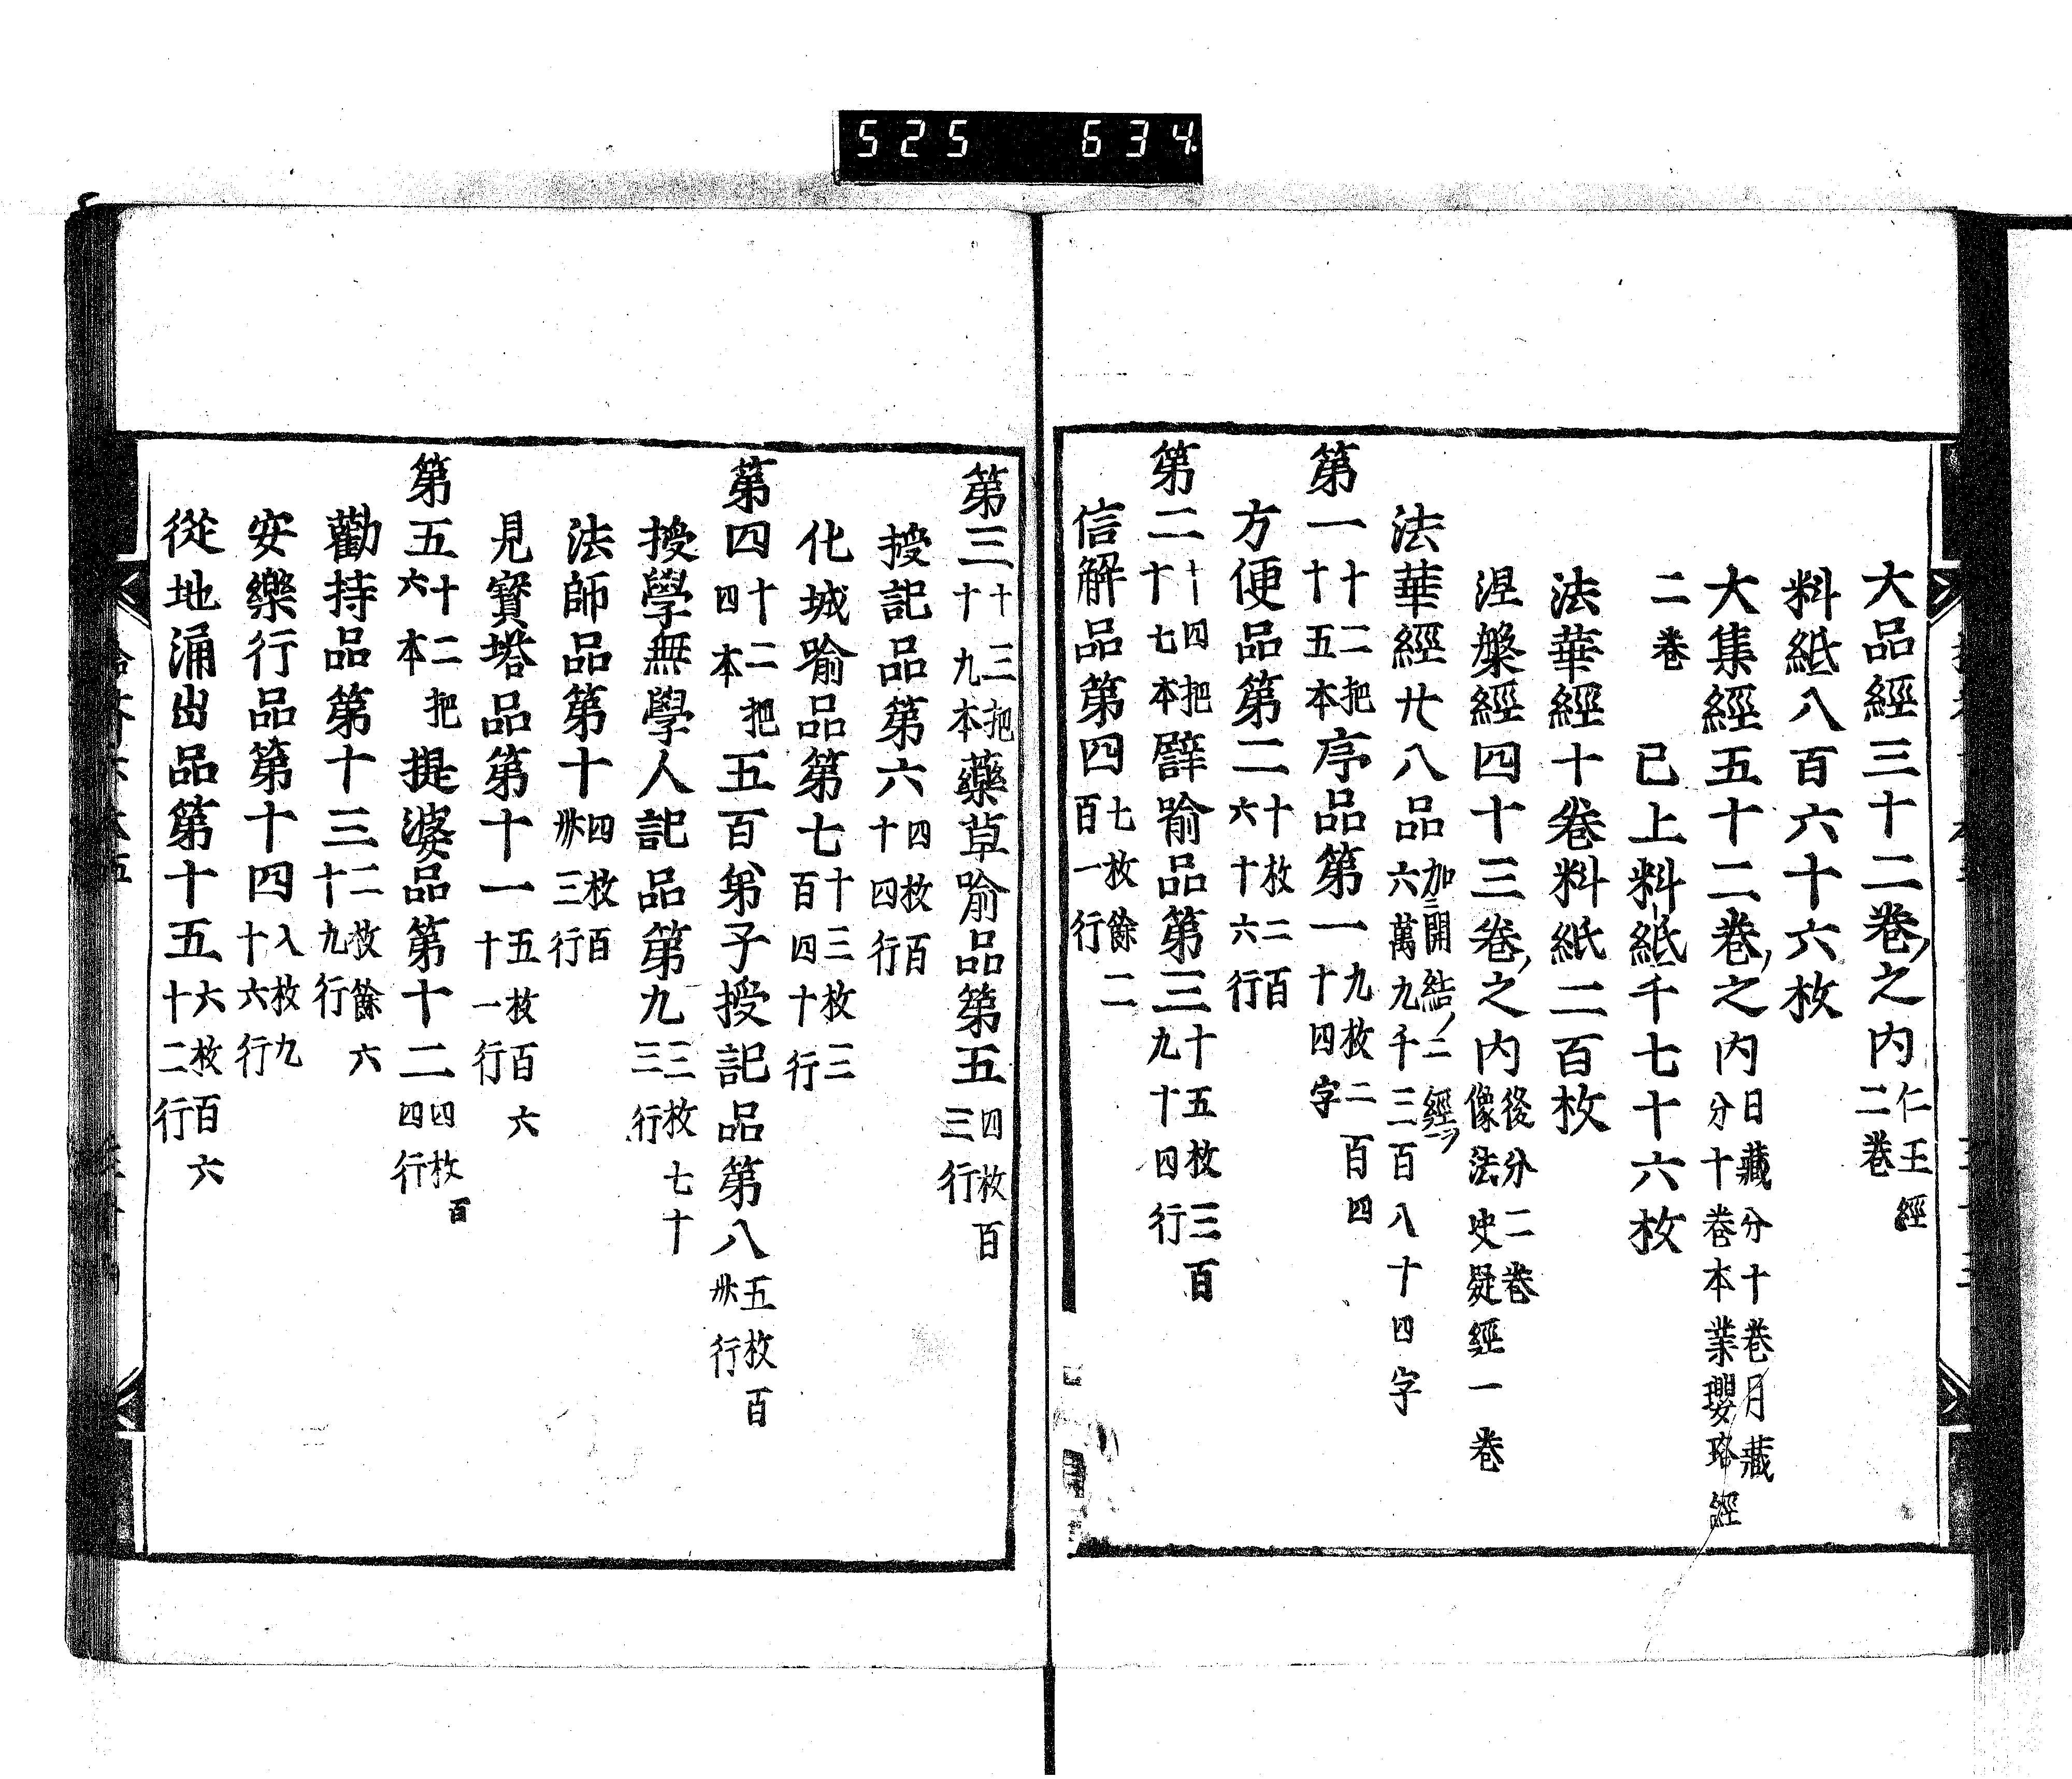 525 634
大品經三十二卷之内仁王經二卷
料紙八百六十六枚
大集經五十二卷之内日藏分十卷月藏分十卷本業瓔珞經
二卷 已上料紙千七十六枚
法華經十卷料紙二百枚
涅槃經四十三卷之内後分二卷像法决疑經一卷
法華經廿八品加開結二經ヲ六萬九千三百八十四字
第一十二把十五本序品第一九枚二百四十四字
方便品第二十枚二百六十六行
第二十四把十七本譬喻品第三十五枚三百九十四行
信解品第四七枚餘二百一行
第三十三把十九本藥草喻品第五四枚百三行
授記品第六四枚百十四行
化城喻品第七十三枚三百四十行
第四十二把四本五百弟子授記品第八五枚百卅行
授學無學人記品第九三枚七十三行
法師品第十四枚百卅三行
見寳塔品第十一五枚百六十一行
第五十二把六本提婆品第十二四枚百四行
勸持品第十三二枚餘六十九行
安樂行品第十四八枚九十六行
從地涌出品第十五六枚百六十二行